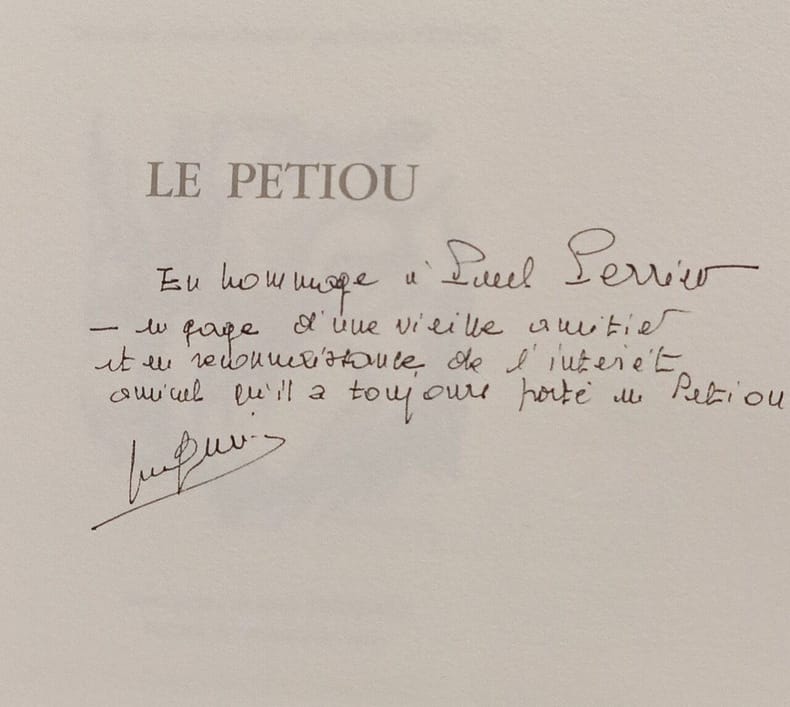 LE PETIOU
En hommage à Paul Perrier
— en gage d'une vieille amitié
et en reconnaissance de l'intérêt
amical qu'il a toujours porté au Petiou